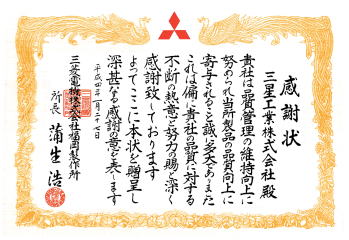 感謝状
三星工業株式会社 殿
貴社は品質管理の維持向上に
努められ当所製品の品質向上に
寄与されること誠に多大でありまた
これは偏に貴社の品質に対する
不断の熱意と努力の賜と深く
感謝致しております
よってここに本状を贈呈し
深甚なる感謝の意を表します
平成四年二月二七日
三菱電機株式会社福岡製作所
所長 蒲生浩